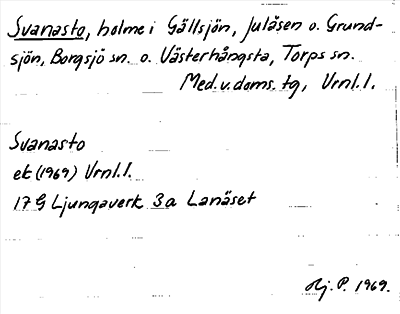 Svanasto, holme i Gällsjön, Julåsen o. Grund-
sjön, Borgsjö sn. o. Västerhångsta, Torps sn.
Med. v. doms. tg, Vrnl. l.
Svanasto
ek (1969) Vrnl. l.
17 G Ljungaverk 3a Lanäset
Hj. P. 1969.